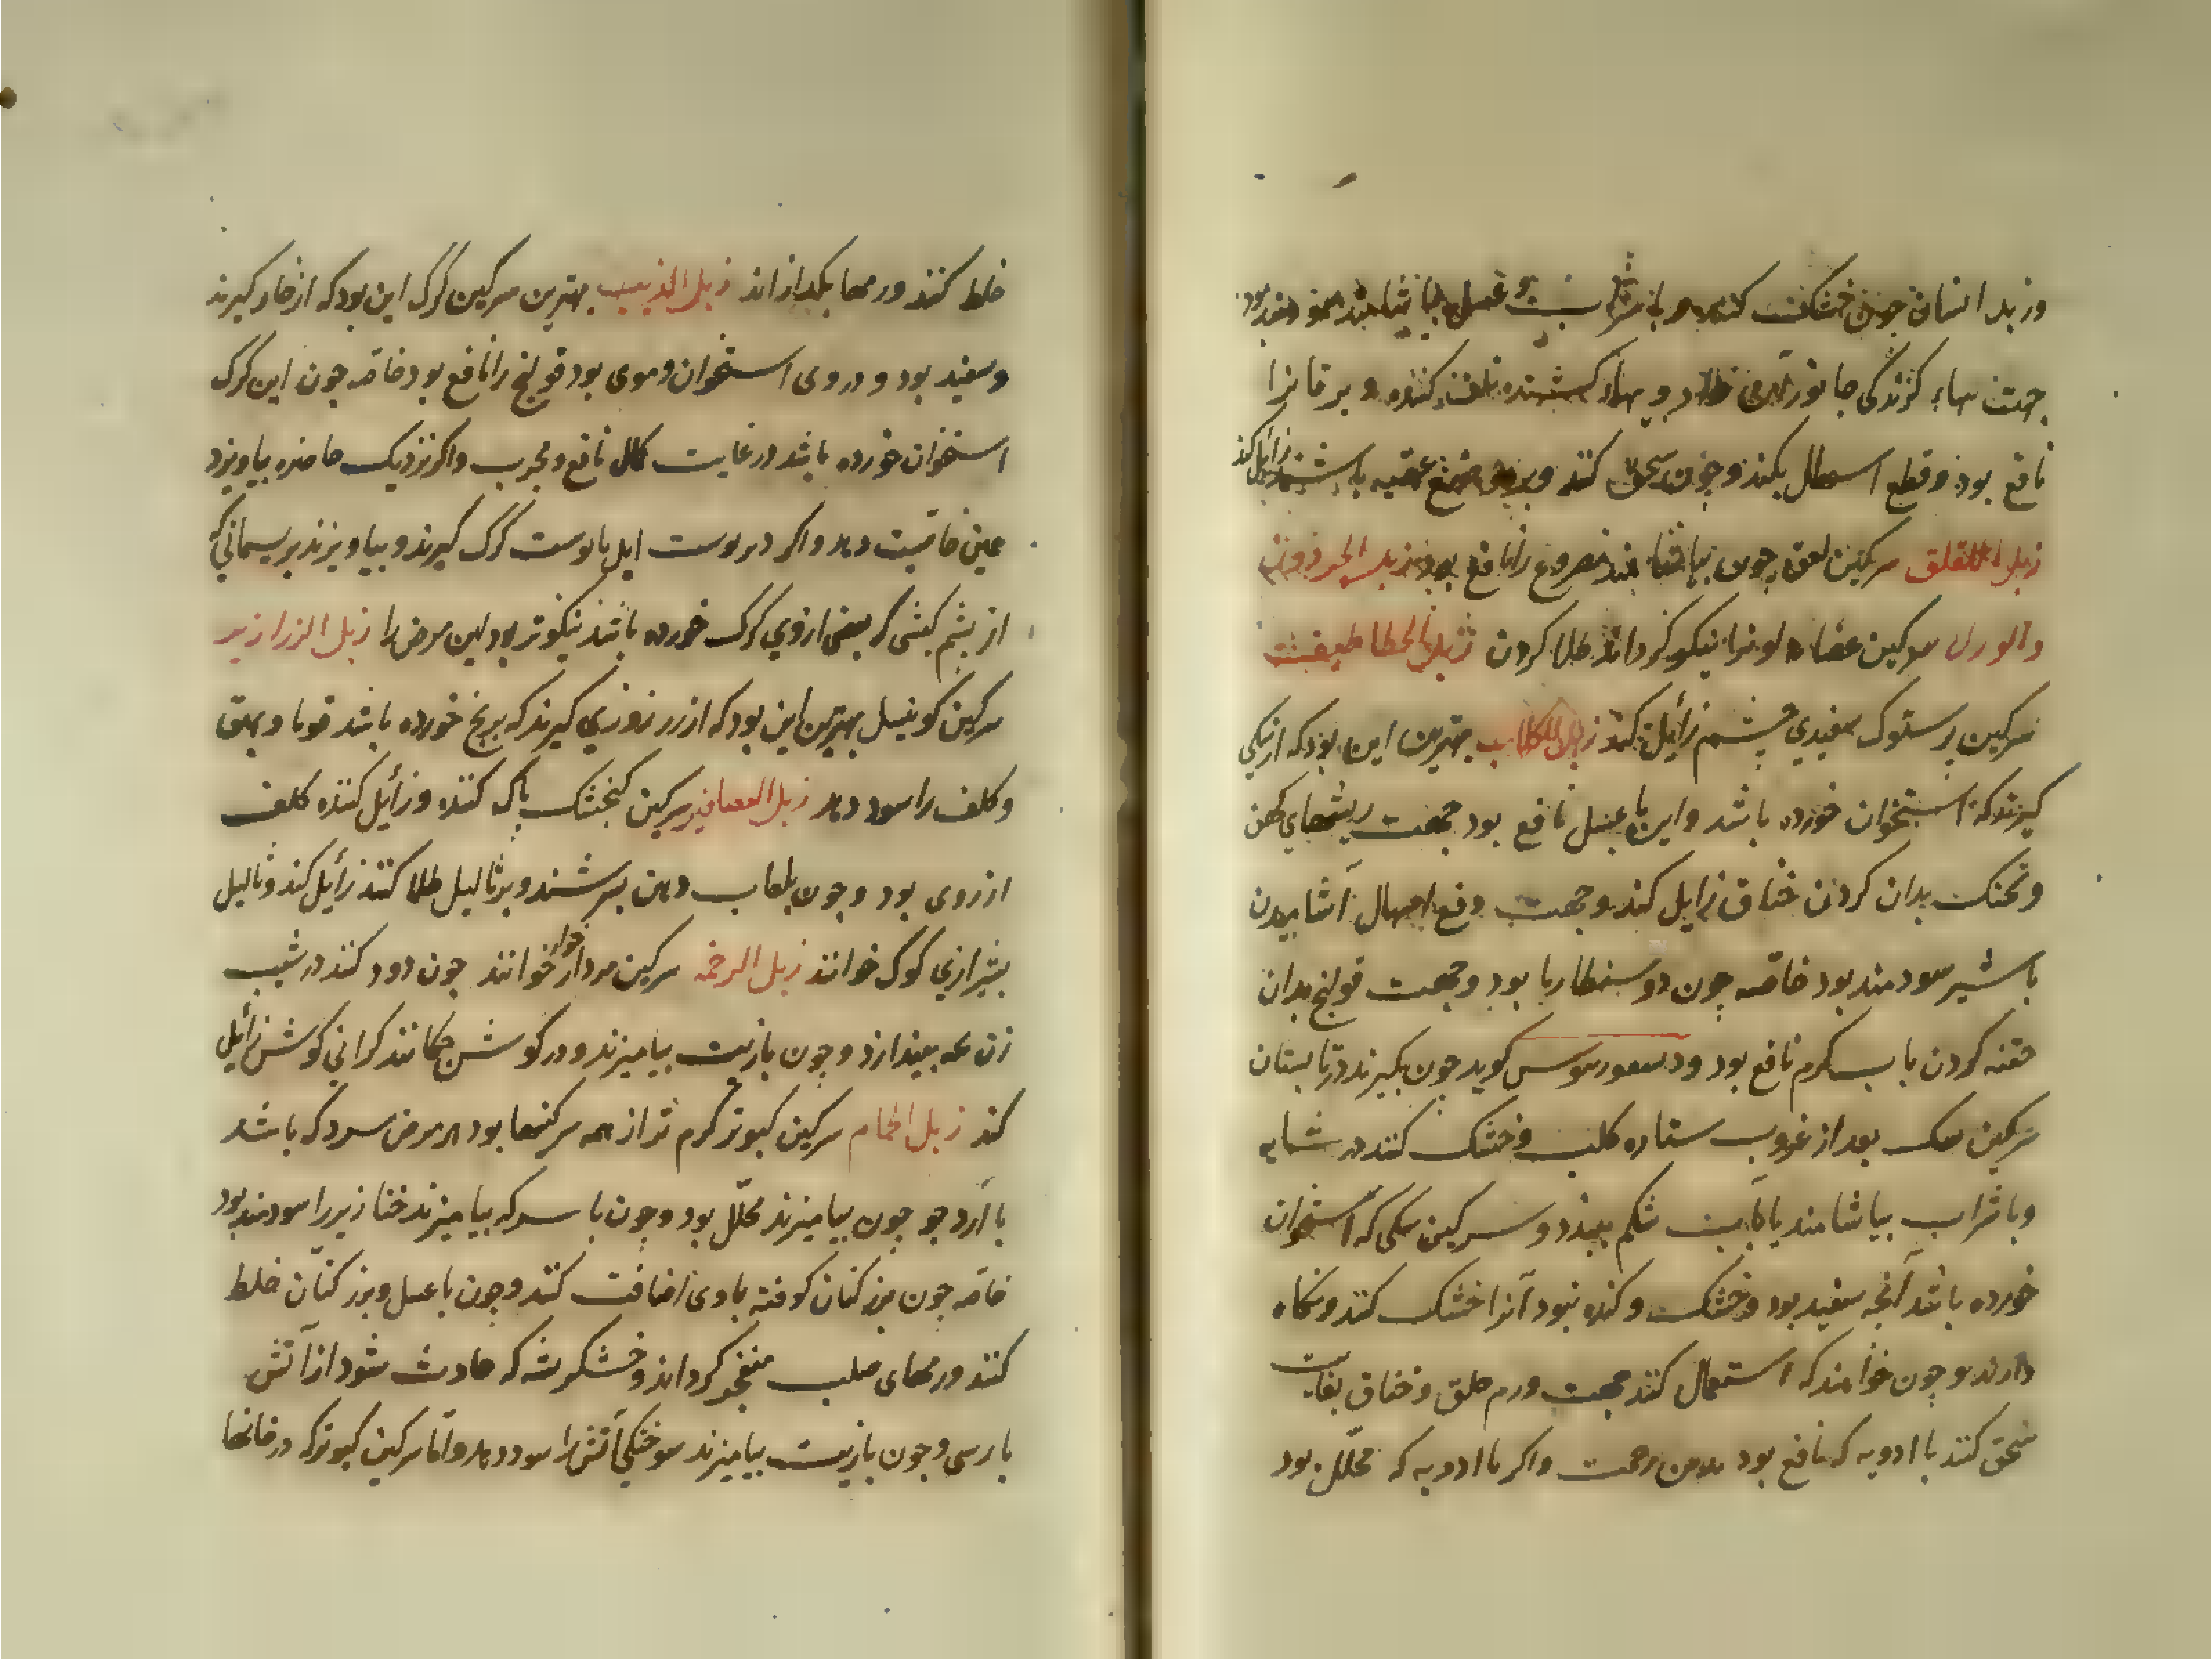 وزبل انسان چون خشک کنند و با شراب و عسل بیاشامند سودمند بود
جهت تبهاء گزندگی جانور و تبهاء کشنده کننده و یرقانرا
نافع بود و قطع اسهال بکند و چون سحق کنند و زائل کند
زبل اللقلق سرکین لقلق چون بیاشامند مصروع را نافع بود زبل الحرذون
والورل سرکین لونرا نیکو کرداند طلا کردن زبل الخطاطیف
سرکین پرستوک سفیدی چشم زائل کند زبل الکلاب بهترین این بود که از سکی
کیرند که استخوان خورده باشد و این با عسل نافع بود جهت ریشهای کهن
و تحنک بدان کردن خناق زایل کند و جهت دفع اسهال آشامیدن
با شیر سودمند بود خاصه چون دوسنطاریا بود و جهت قولنج بدان
حقنه کردن با آب کرم نافع بود و دیسقوریدوس کوید چون بکیرند در تابستان
سرکین سک بعد از غروب ستاره کلب و خشک کنند در سایه
و با شراب بیاشامند یا بآب شکم ببندد و سرکین سکی که استخوان
خورده باشد آنچه سفید بود و خشک و کنده نبود آنرا خشک کنند و نگاه
دارند و چون خواهند که استعمال کنند جهت ورم حلق و خناق بغایت
سحق کنند با ادویه که نافع بود بدین زحمت و اکر با ادویه که محلّل بود
خلط کنند ورمها بکدازاند زبل الذیب بهترین سرکین کرک این بود که از خار کیرند
و سفید بود و در وی استخوان و موی بود قولنج را نافع بود خاصه چون این کرک
استخوان خورده باشد در غایت کمال نافع و مجرب و اکر نزدیک خاصره بیاویزد
همین خاصیت دهد و اکر در پوست ایل یا پوست کرک کیرند و بیاویزند بریسمانی که
از پشم کبشی که بعضی از وی کرک خورده باشد نیکوتر بود این مرض را زبل الزرازیر
سرکین بهترین این بود که از زرزوری کیرند که برنج خورده باشد قوبا و بهق
و کلف را سود دهد زبل العصافیر سرکین کنجشک پاک کننده و زائل کننده کلف
از روی بود و چون بلعاب دهن بسرشند و بر ثالیل طلا کنند زائل کند و ثالیل
بشیرازی کوک خوانند زبل الرخمه سرکین مردار خوار خوانند چون دود کنند در شیب
زن بچه بیندازد و چون با زیت بیامیزند و در کوش چکانند کرانی کوش زائل
کند زبل الحمام سرکین کبوتر کرم تر از همه سرکینها بود هر مرض سرد که باشد
با آرد جو چون بیامیزند محلّل بود و چون با سرکه بیامیزند خنازیر را سودمند بود
خاصه چون بزر کتان کوفته با وی اضافت کنند و چون با عسل و بزر کتّان خلط
کنند ورمهای صلب منفجر کرداند و خشکریشه که حادث شود از آتش
پارسی و چون با زیت بیامیزند سوختگی آتش را سود دهد و امّا سرکین کبوتر که در خانها